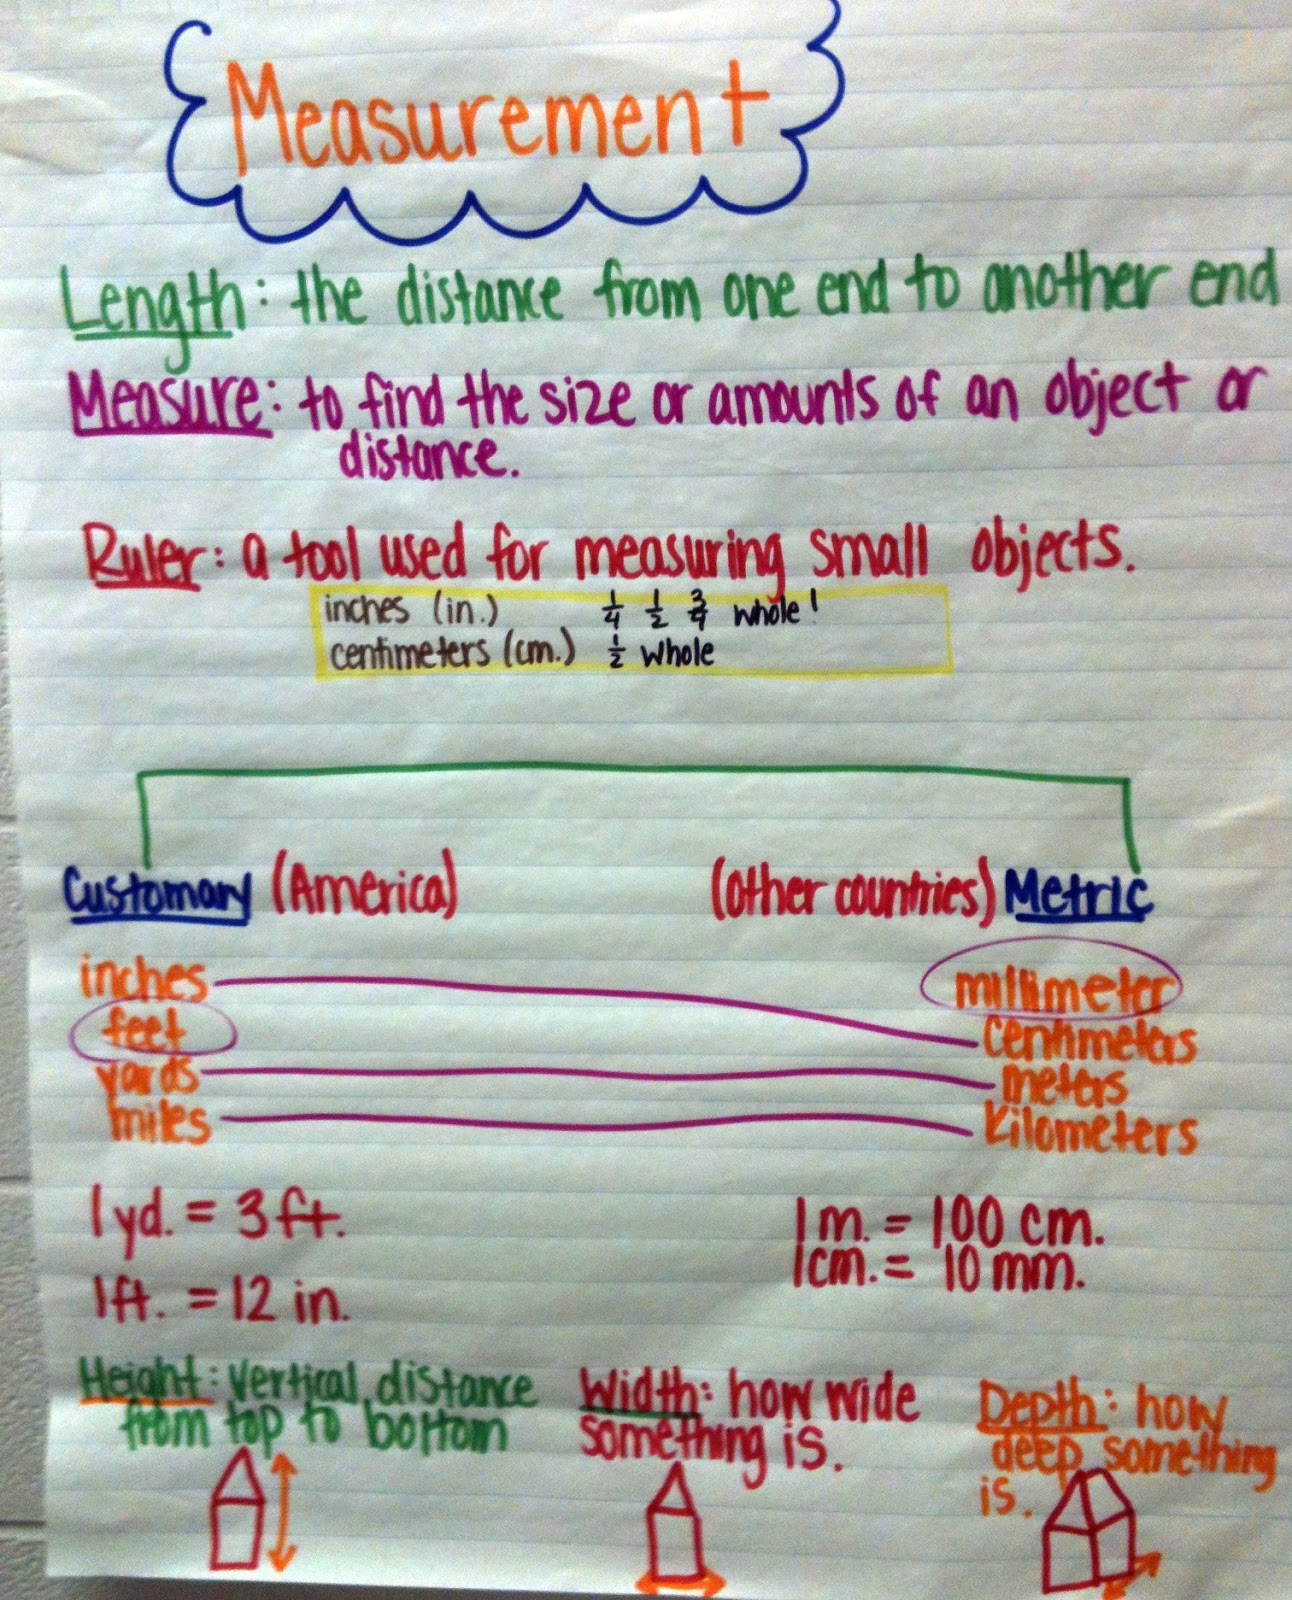 Measurement
Length: the distance from one end to another end
Measure: to find the size or amounts of an object or
distance.
Ruler: a tool used for measuring small objects.
inches (in.) 1/4 1/2 3/4 whole!
centimeters (cm.) 1/2 whole
Customary (America) (other countries) Metric
inches millimeter
feet centimeters
yards meters
miles kilometers
1 yd. = 3 ft. 1 m. = 100 cm.
1 ft. = 12 in. 1 cm. = 10 mm.
Height: vertical distance
from top to bottom
Width: how wide
something is.
Depth: how
deep something
is.